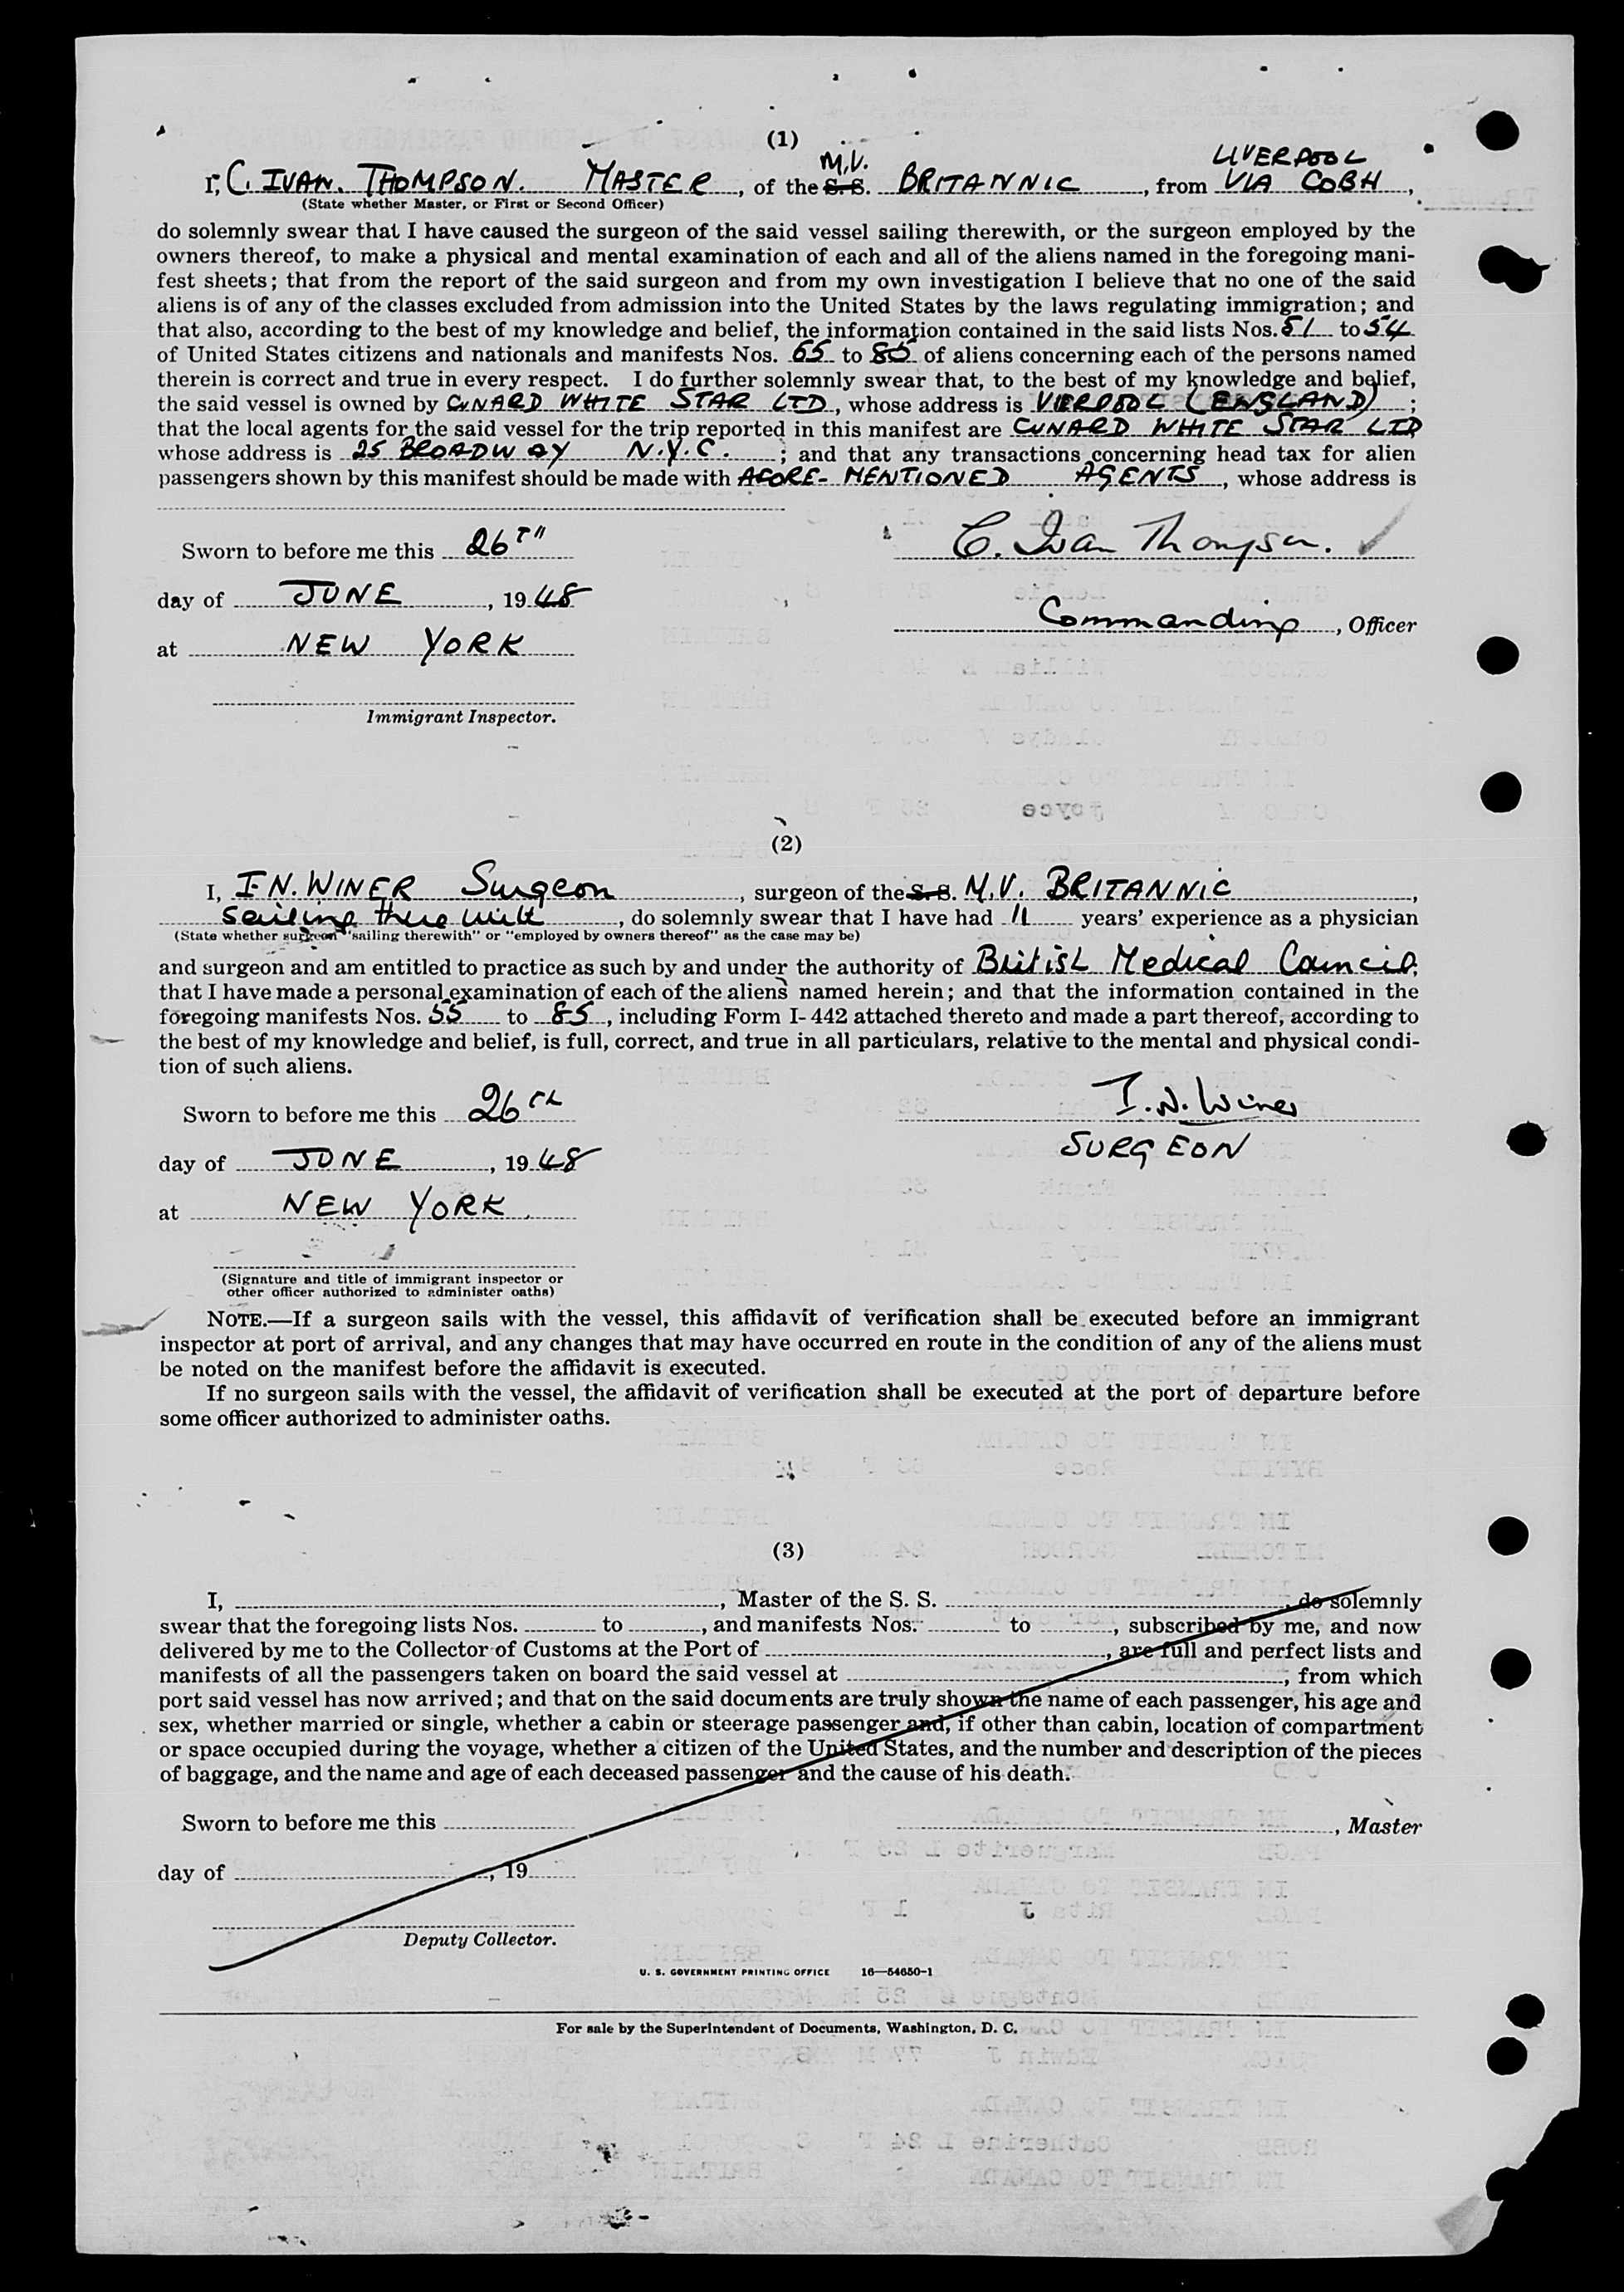 (1)
LIVERPOOL
M.V.
I, C. IVAN. THOMPSON. MASTER, of the S. S. BRITANNIC, from VIA COBH,
(State whether Master, or First or Second Officer)
do solemnly swear that I have caused the surgeon of the said vessel sailing therewith, or the surgeon employed by the
owners thereof, to make a physical and mental examination of each and all of the aliens named in the foregoing mani-
fest sheets; that from the report of the said surgeon and from my own investigation I believe that no one of the said
aliens is of any of the classes excluded from admission into the United States by the laws regulating immigration; and
that also, according to the best of my knowledge and belief, the information contained in the said lists Nos. 51 to 54
of United States citizens and nationals and manifests Nos. to 85 of aliens concerning each of the persons named
therein is correct and true in every respect. I do further solemnly swear that, to the best of my knowledge and belief,
the said vessel is owned by CUNARD WHITE STAR LTD, whose address is (ENGLAND);
that the local agents for the said vessel for the trip reported in this manifest are CUNARD WHITE STAR LTD
whose address is 25 BROADWAY N.Y.C.; and that any transactions concerning head tax for alien
passengers shown by this manifest should be made with AFORE-MENTIONED AGENTS, whose address is
Sworn to before me this 26TH
C. Ivan Thompson.
day of JUNE, 1948
Commanding, Officer
at NEW YORK
Immigrant Inspector.
(2)
I, I.N. WINER Surgeon, surgeon of the S. S. M.V. BRITANNIC,
sailing therewith, do solemnly swear that I have had 11 years' experience as a physician
(State whether surgeon "sailing therewith" or "employed by owners thereof" as the case may be)
and surgeon and am entitled to practice as such by and under the authority of British Medical Council,
that I have made a personal examination of each of the aliens named herein; and that the information contained in the
foregoing manifests Nos. 55 to 85, including Form I-442 attached thereto and made a part thereof, according to
the best of my knowledge and belief, is full, correct, and true in all particulars, relative to the mental and physical condi-
tion of such aliens.
Sworn to before me this 26th
I.N. Winer
SURGEON
day of JUNE, 1948
at NEW YORK.
(Signature and title of immigrant inspector or
other officer authorized to administer oaths)
NOTE.—If a surgeon sails with the vessel, this affidavit of verification shall be executed before an immigrant
inspector at port of arrival, and any changes that may have occurred en route in the condition of any of the aliens must
be noted on the manifest before the affidavit is executed.
If no surgeon sails with the vessel, the affidavit of verification shall be executed at the port of departure before
some officer authorized to administer oaths.
(3)
I, , Master of the S. S. , do solemnly
swear that the foregoing lists Nos. to , and manifests Nos. to , subscribed by me, and now
delivered by me to the Collector of Customs at the Port of , are full and perfect lists and
manifests of all the passengers taken on board the said vessel at , from which
port said vessel has now arrived; and that on the said documents are truly shown the name of each passenger, his age and
sex, whether married or single, whether a cabin or steerage passenger and, if other than cabin, location of compartment
or space occupied during the voyage, whether a citizen of the United States, and the number and description of the pieces
of baggage, and the name and age of each deceased passenger and the cause of his death.
Sworn to before me this
, Master
day of , 19
Deputy Collector.
U. S. GOVERNMENT PRINTING OFFICE 16—54650-1
For sale by the Superintendent of Documents, Washington, D. C.